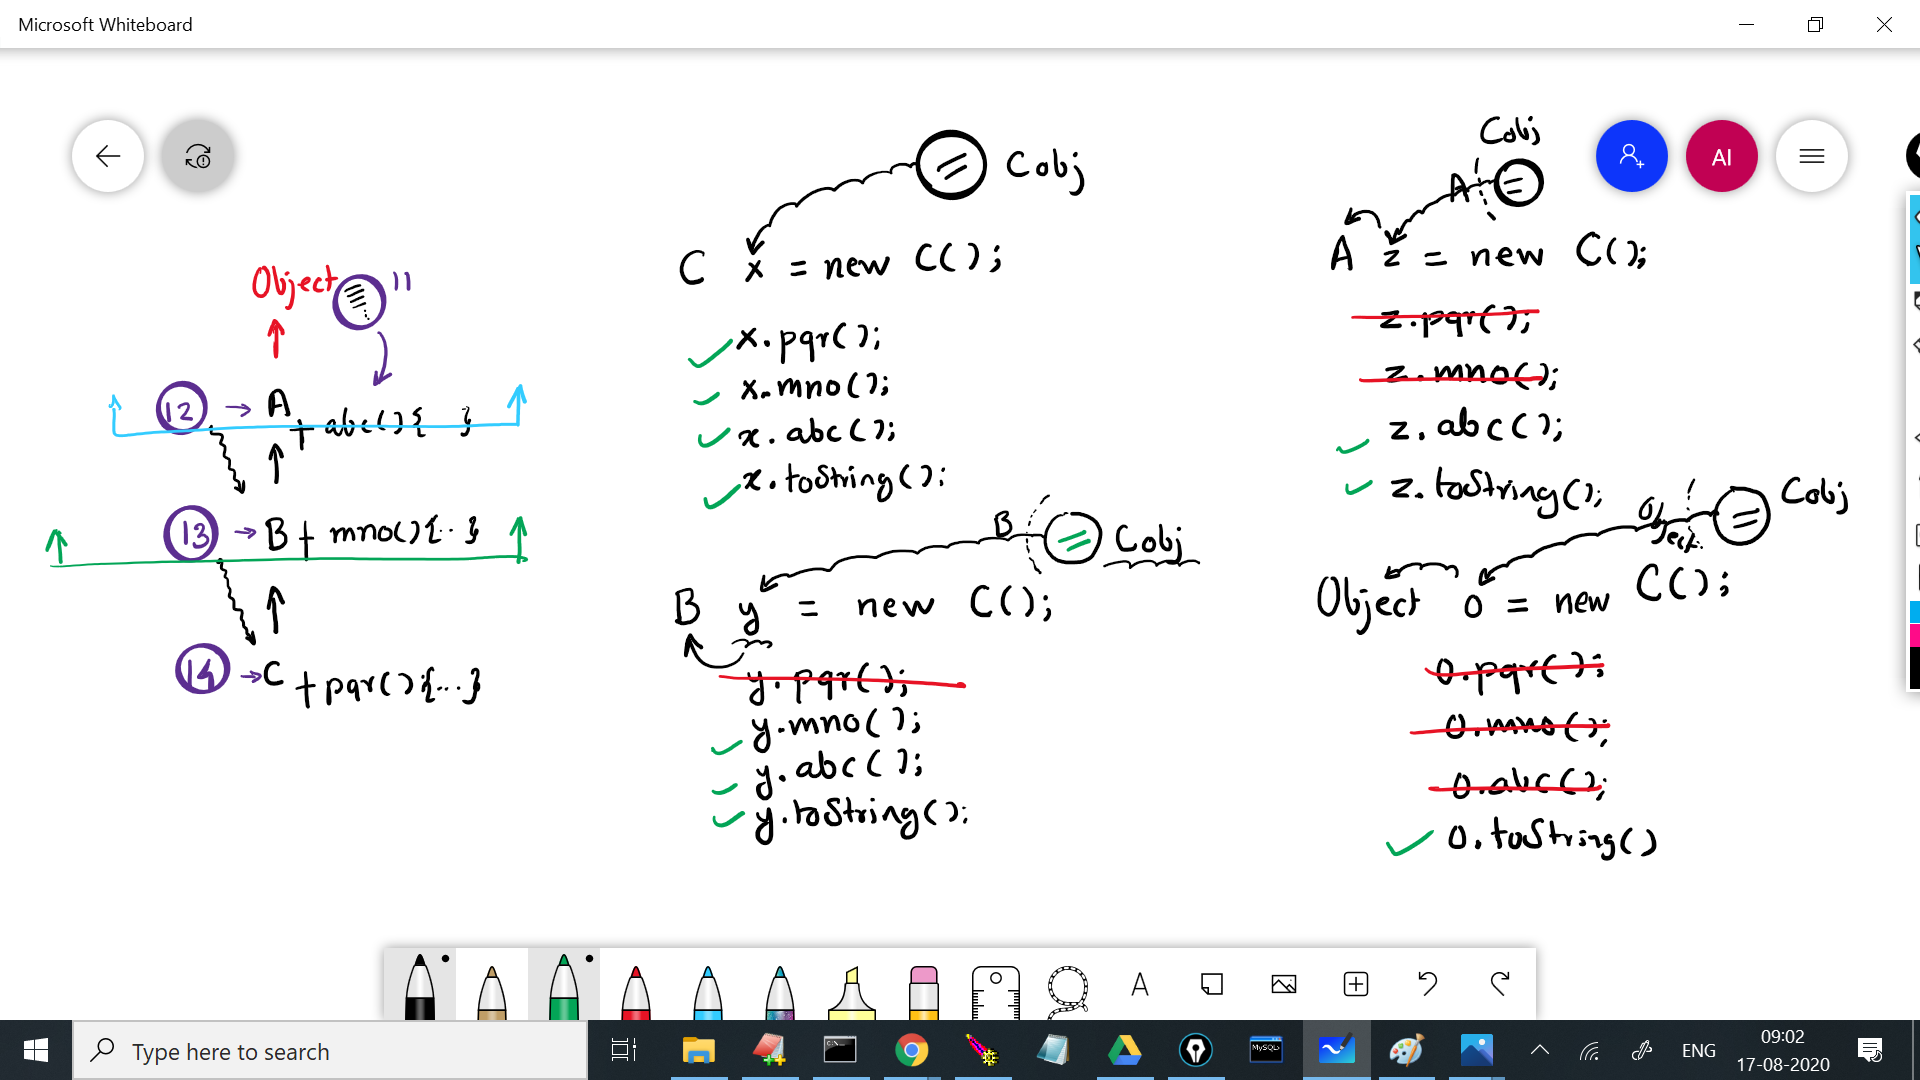 Microsoft Whiteboard
AI
Object 11
12 → A
+ abc(){ }
13 → B + mno(){..}
14 → C + pqr(){...}
C obj
C x = new C();
x.pqr();
x.mno();
x.abc();
x.toString();
B Cobj
B y = new C();
y.pqr();
y.mno();
y.abc();
y.toString();
Cobj
A
A z = new C();
z.pqr();
z.mno();
z.abc();
z.toString();
Object Cobj
Object o = new C();
o.pqr();
o.mno();
o.abc();
o.toString()
A
Type here to search
MySQL
ENG
09:02
17-08-2020